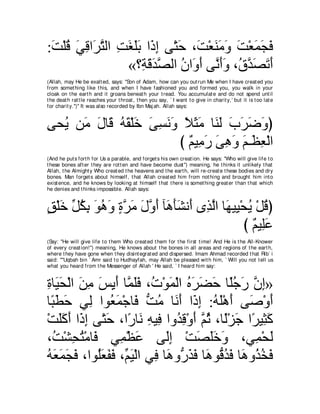 :ﻓَﺠَﻤَﻌْﺖَ ﻭَﻣَﻨَﻌْﺖَ، ﺣَﺘَّﻰ ﺇِﺫَﺍ ﺑَﻠَﻐَﺖِ ﺍﻟﺘَّﺮَﺍﻗِﻲَ ﻗُﻠْﺖَ
«ﺃَﺗَﺼَﺪَّﻕُ، ﻭَﺃَﻧَّﻰ ﺃَﻭَﺍﻥُ ﺍﻟﺼَّﺪَﻗَﺔِ؟
(Allah, may He be exalted, says: "Son of Adam, how can you outrun Me when I have created you
from something like this, and when I have fashioned you and formed you, you walk in your
cloak on the earth and it groans beneath your tread. You accumulate and do not spend until
the death rattle reaches your throat, then you say, ` I want to give in charity,' but it is too late
for charity.'')" It was also recorded by Ibn Majah. Allah says:
(ﻭَﺿَﺮَﺏَ ﻟَﻨَﺎ ﻣَﺜَﻼً ﻭَﻧَﺴِﻰَ ﺧَﻠْﻘَﻪُ ﻗَﺎﻝَ ﻣَﻦ ﻳُﺤﻰِ
ﺍﻟْﻌِﻈَـﻢَ ﻭَﻫِﻰَ ﺭَﻣِﻴﻢٌ )
(And he puts forth for Us a parable, and forgets his own creation. He says: "Who will give life to
these bones after they are rotten and have become dust'') meaning, he thinks it unlikely that
Allah, the Almighty Who created the heavens and the earth, will re-create these bodies and dry
bones. Man forgets about himself, that Allah created him from nothing and brought him into
existence, and he knows by looking at himself that there is something greater than that which
he denies and thinks impossible. Allah says:
(ﻗُﻞْ ﻳُﺤْﻴِﻴﻬَﺎ ﺍﻟَّﺬِﻯ ﺃَﻧﺸَﺄَﻫَﺂ ﺃَﻭَّﻝَ ﻣَﺮَّﺓٍ ﻭَﻫُﻮَ ﺑِﻜُﻞِّ ﺧَﻠْﻖٍ
ﻋَﻠِﻴﻢٌ )
(Say: "He will give life to them Who created them for the first time! And He is the All-Knower
of every creation!'') meaning, He knows about the bones in all areas and regions of the earth,
where they have gone when they disintegrated and dispersed. Imam Ahmad recorded that Rib` i
said: "`Uqbah bin ` Amr said to Hudhayfah, may Allah be pleased with him, ` Will you not tell us
what you heard from the Messenger of Allah ' He said, ` I heard him say:
«ﺇِﻥَّ ﺭَﺟُﻠًﺎ ﺣَﻀَﺮَﻩُ ﺍﻟْﻤَﻮْﺕُ، ﻓَﻠَﻤَّﺎ ﺃَﻳِﺲَ ﻣِﻦَ ﺍﻟْﺤَﻴَﺎﺓِ
ﺃَﻭْﺻَﻰ ﺃَﻫْﻠَﻪُ: ﺇِﺫَﺍ ﺃَﻧَﺎ ﻣُﺖُّ ﻓَﺎﺟْﻤَﻌُﻮﺍ ﻟِﻲ ﺣَﻄَﺒًﺎ
ﻛَﺜِﻴﺮًﺍ ﺟَﺰْﻟًﺎ، ﺛُﻢَّ ﺃَﻭْﻗِﺪُﻭﺍ ﻓِﻴﻪِ ﻧَﺎﺭًﺍ، ﺣَﺘَّﻰ ﺇِﺫَﺍ ﺃَﻛَﻠَﺖْ
ﻟَﺤْﻤِﻲ، ﻭَﺧَﻠَﺼَﺖْ ﺇِﻟَﻰ ﻋَﻈْﻤِﻲ ﻓَﺎﻣْﺘُﺤِﺸَﺖْ،
ﻓَﺨُﺬُﻭﻫَﺎ ﻓَﺪُﻗُّﻮﻫَﺎ ﻓَﺬَﺭُّﻭﻫَﺎ ﻓِﻲ ﺍﻟْﻴَﻢِّ، ﻓَﻔَﻌَﻠُﻮﺍ، ﻓَﺠَﻤَﻌَﻪُ